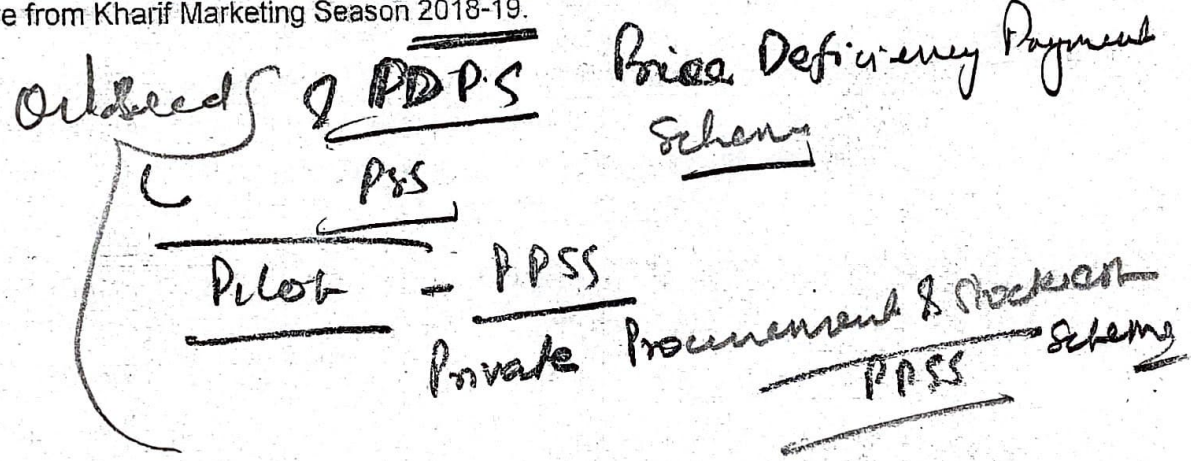 e from Kharif Marketing Season 2018-19.
Oilseeds & PDPS Price Deficiency Payment
Scheme
PSS
Pilot - PPSS
Private Procurement & Stockist Scheme
PPSS